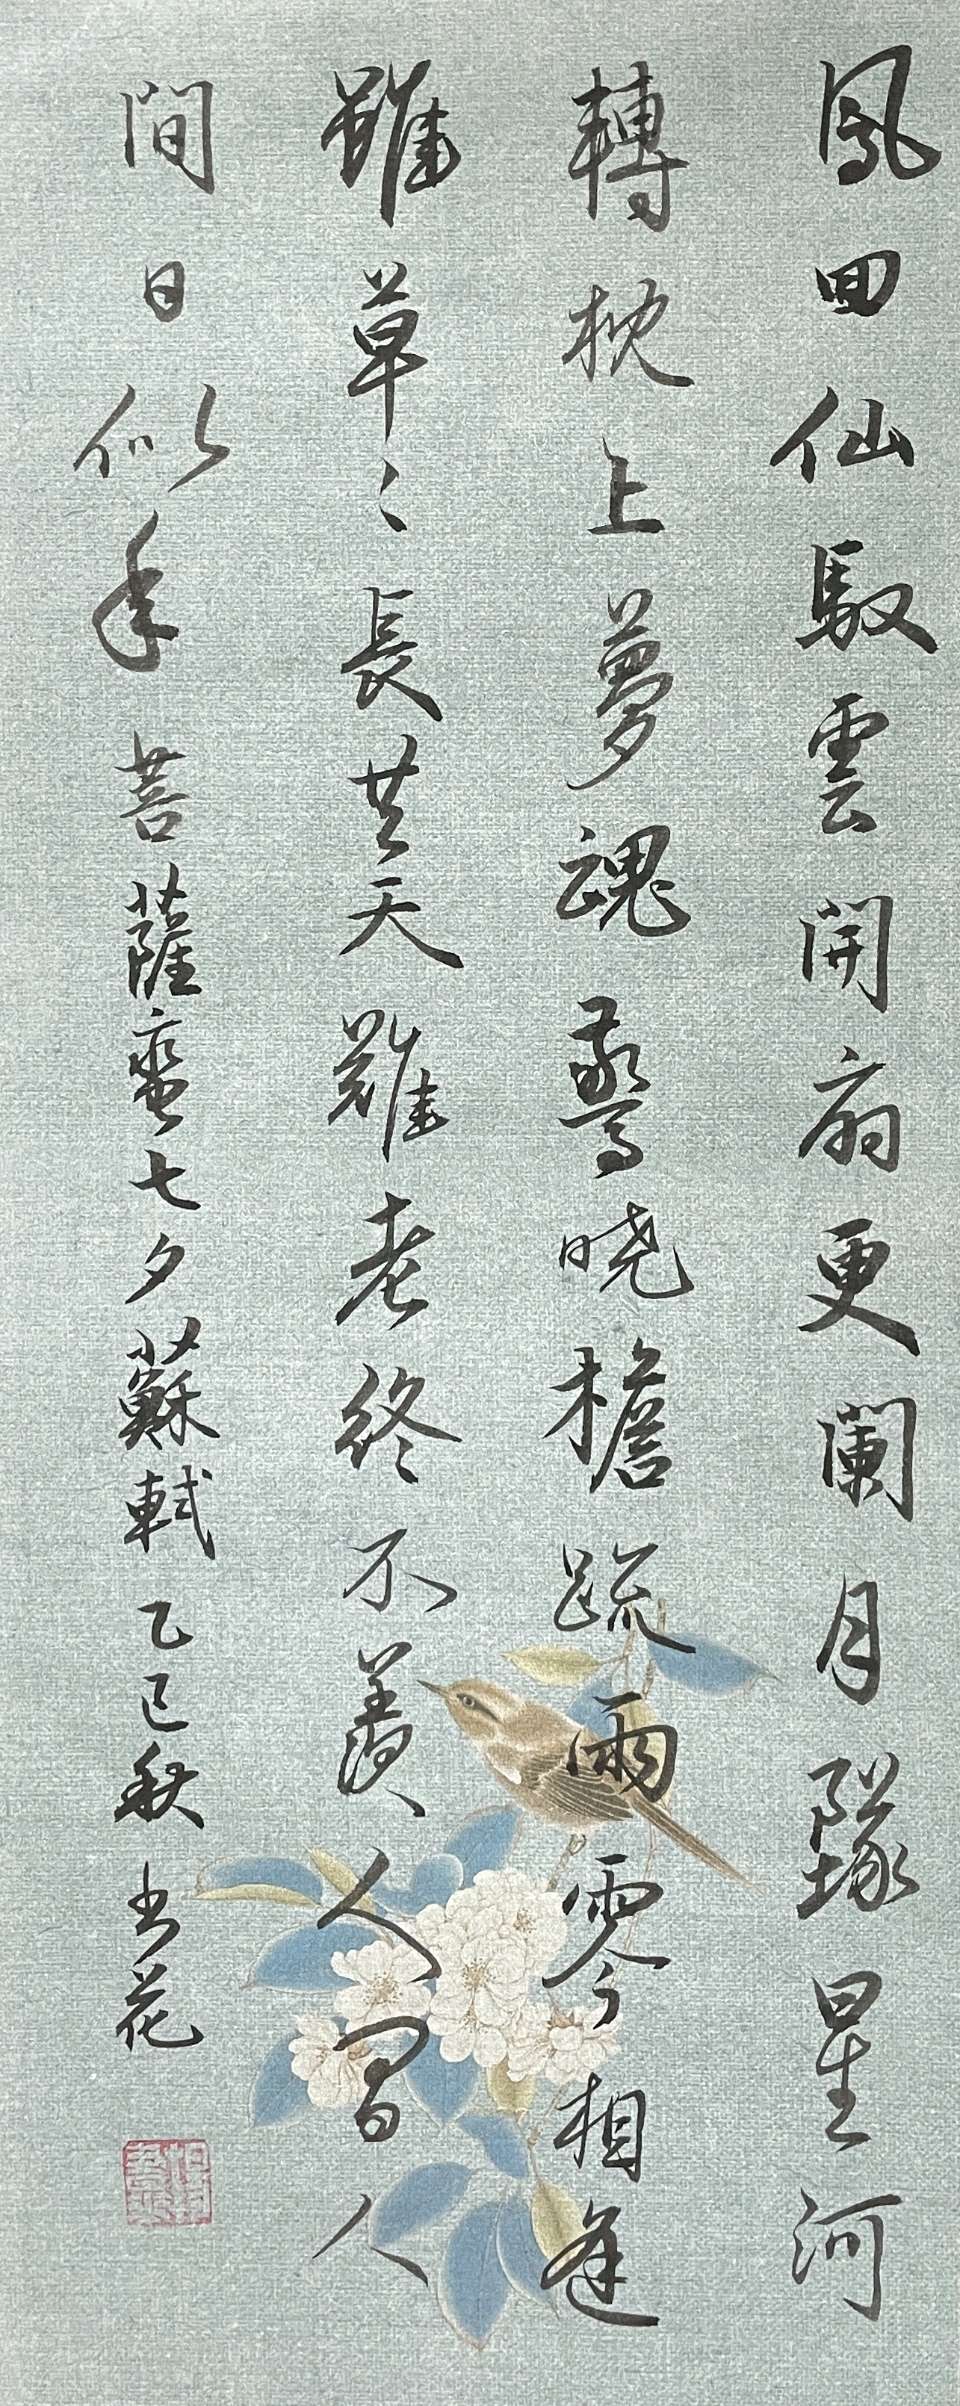 鳳回仙馭雲開扇更闌月墜星河
轉枕上夢魂驚曉檐疏雨零相逢
雖草〻長共天難老終不羨人間人
間日似年 菩薩蠻七夕蘇軾 乙巳秋 花